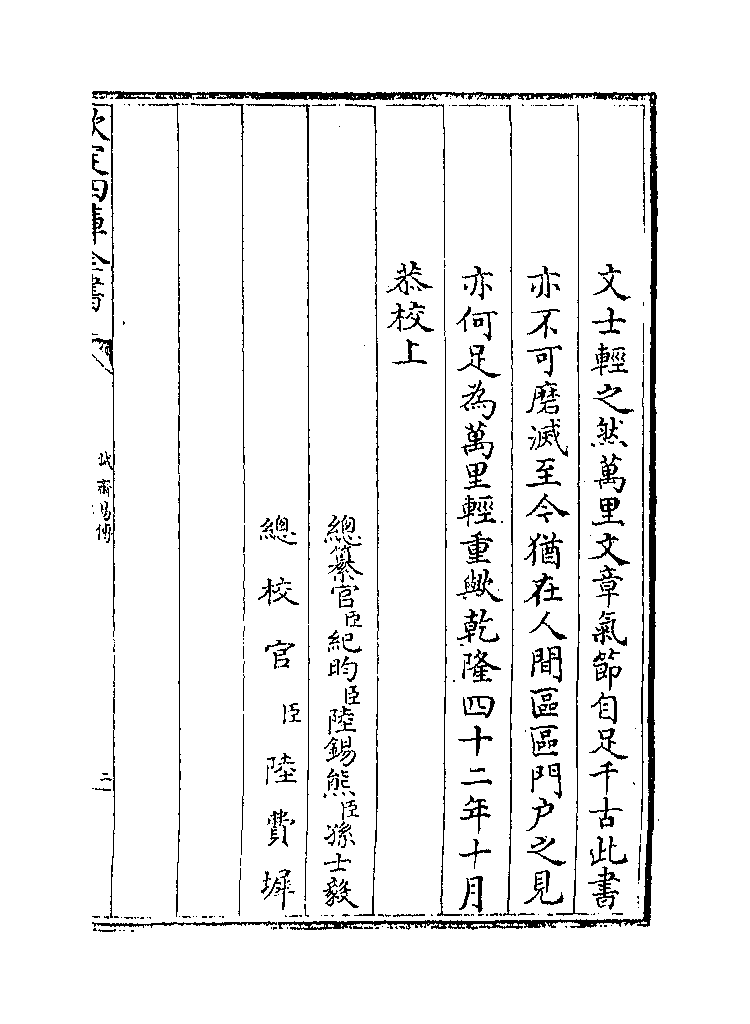 文士輕之然萬里文章氣節自足千古此書
亦不可磨滅至今猶在人間區區門户之見
亦何足為萬里輕重歟乾隆四十二年十月
恭校上
總纂官臣紀昀臣陸錫熊臣孫士毅
總校官臣陸費墀
欽定四庫全書
誠齋易傳
二